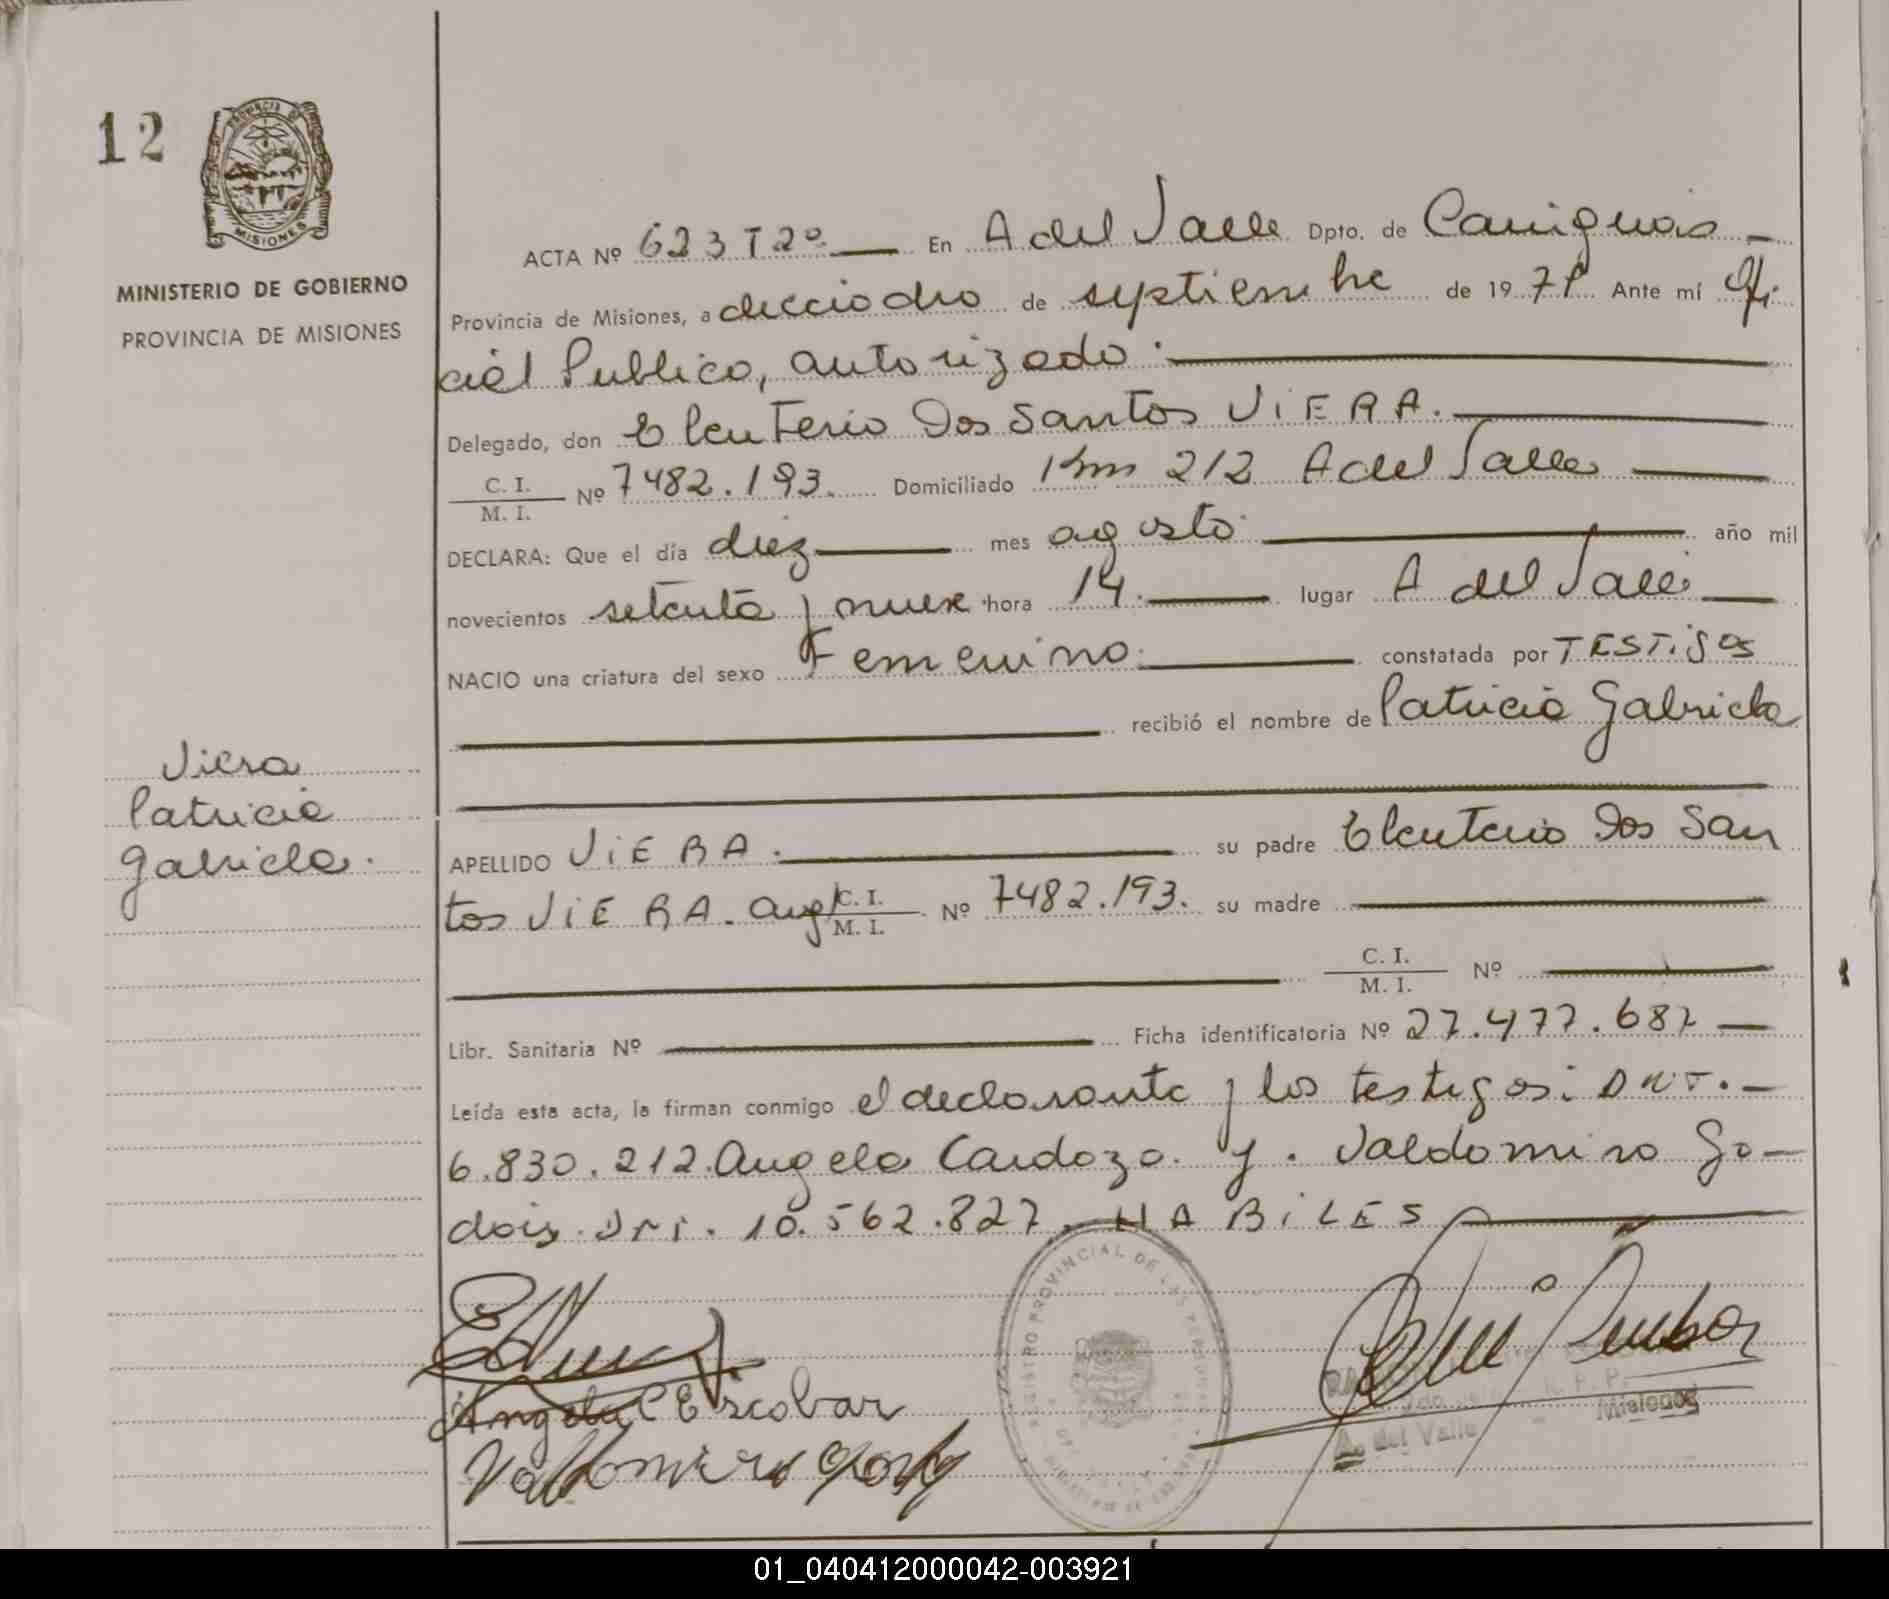 12
PROVINCIA DE
MISIONES
MINISTERIO DE GOBIERNO
PROVINCIA DE MISIONES
ACTA Nº 623 T 2º En A del Valle Dpto. de Cainguas
Provincia de Misiones, a dieciocho de septiembre de 19 Ante mí Ofi
cial Publico, autorizado.
Delegado, don Eleuterio Dos Santos ViERA.
C. I. / M. I. Nº 7482.193. Domiciliado Km 212 A del Valle
DECLARA: Que el día diez mes agosto año mil
novecientos setenta y nueve hora 14. lugar A del Valle
NACIO una criatura del sexo Femenino. constatada por TESTiGos
recibió el nombre de Patricia Gabriela
APELLIDO ViERA. su padre Eleuterio Dos San
tos ViERA. arg/ C. I. / M. I. Nº 7482.193. su madre
C. I. / M. I. Nº
Libr. Sanitaria Nº Ficha identificatoria Nº 27.477.687
Leída esta acta, la firman conmigo el declarante y los testigos: DNI.
6.830.212. Angela Cardozo. y. Valdomiro Go-
dois. Dni. 10.562.827. HABiLES
Viera
Patricia
Gabriela.
REGISTRO PROVINCIAL DE LAS PERSONAS
Angela C Escobar
R. P. P.
A. del Valle - Misiones
01_040412000042-003921